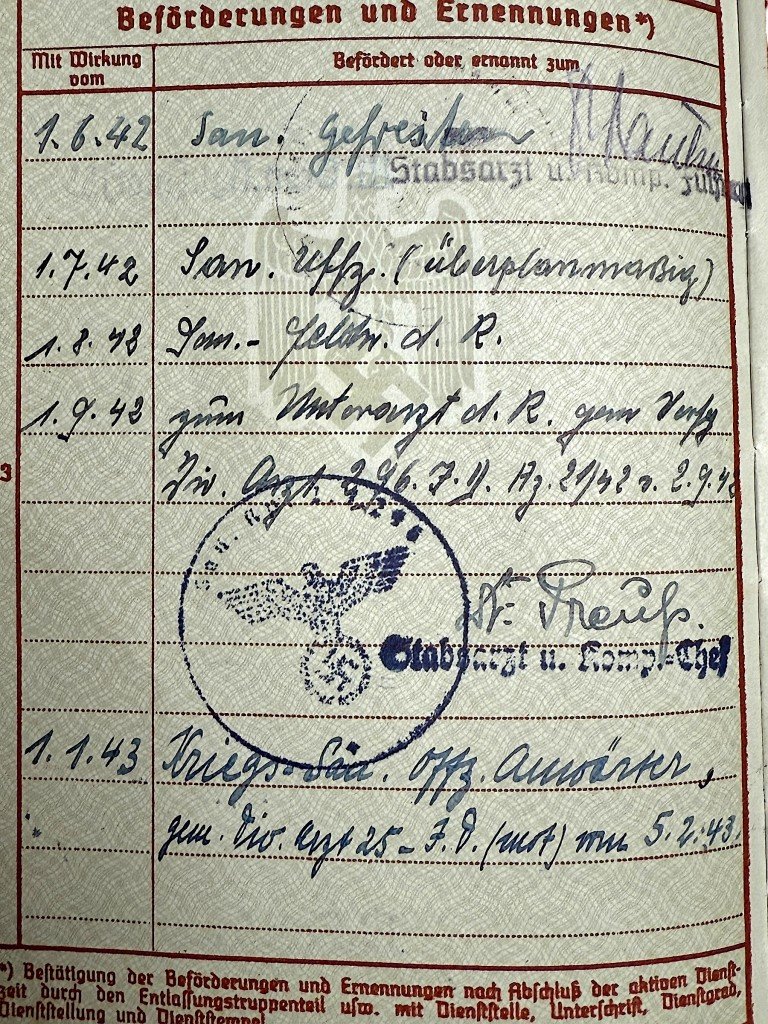 Beförderungen und Ernennungen*)
Mit Wirkung vom
Befördert oder ernannt zum
1.6.42 San. Gefreiten
Stabsarzt u. Komp.
1.7.42 San. Uffz. (überplanmäßig)
1.8.42 San.- Feldw. d. R.
1.9.42 zum Unterarzt d. R. gem Verfg
Div. Arzt 296. I. D. Az. 21/42 v. 2.9.42
San.
Dr. Preuß.
Stabsarzt u. Komp.-Chef
1.1.43 Kriegs-San. Offz. Anwärter,
" gem. Div. Arzt 25 - I.D. (mot) vom 5.2.43.
3
*) Bestätigung der Beförderungen und Ernennungen nach Abschluß der aktiven Dienst-
zeit durch den Entlassungstruppenteil usw. mit Dienststelle, Unterschrift, Dienstgrad,
Dienststellung und Dienststempel